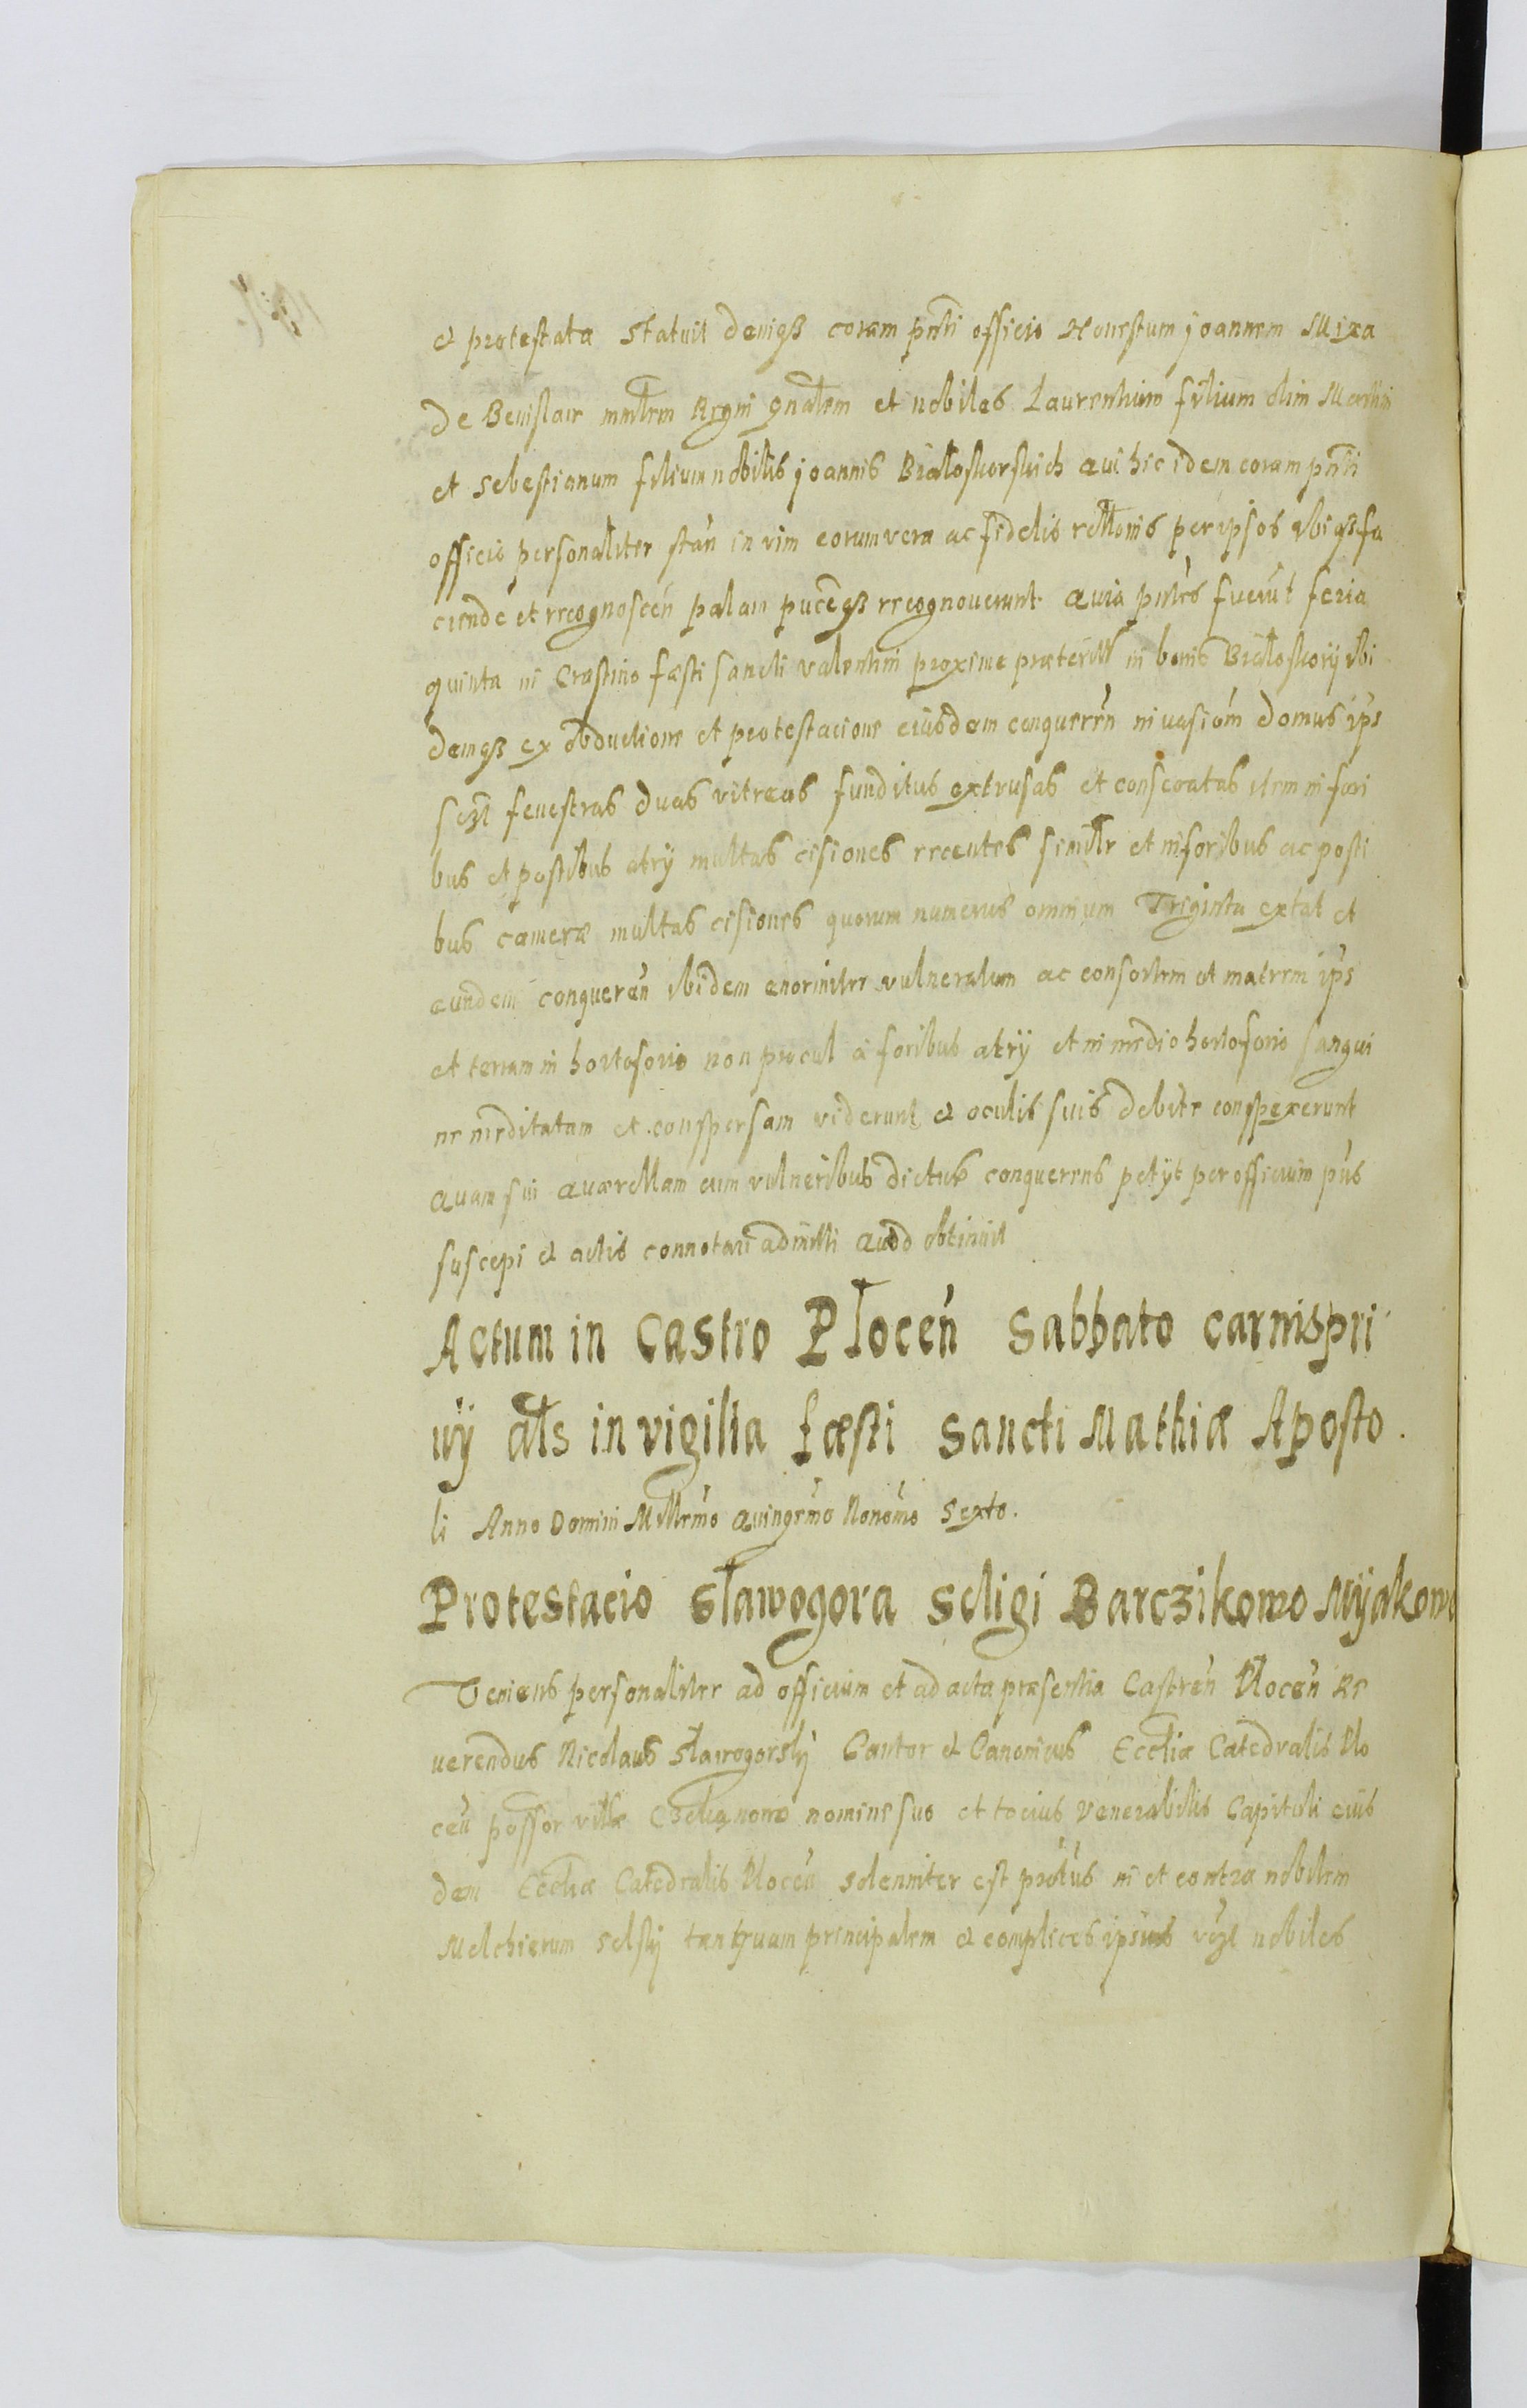 et protestata statuit deniqȝ coram pñti officio Honestum joannem Mixa
de Benislaw mñtrem Regni gnãlem et nobiles Laurentium filium olim Martini
et sebestianum filium nobilis joannis Białoskorskich qui hic idem coram pñti
officio personaliter stań in vim eorum vera ac fidelis rełłonis per ipsos ibiqȝ fa
ciende et recognosceń palam puceqȝ recognoverunt quia pñtes fuerūt feria
quinta in Crastino fæsti sancti valentini proxime præteritt in bonis Białoskory ibi
demqȝ ex obductione et protestacione eiusdem conquereń invasiom domus ips
scȝl fenestras duas vitreas funditus extrusas et conseratas item in fori
bus et postibus atrÿ multas cisiones recentes similr et in foribus ac posti
bus cameræ multas cisiones quorum numerus omnium Triginta extat et
eundem conquereń ibidem enormiter vulneratum ac consortem et matrem ips
et terram in hortosorio non procul a foribus atrÿ et in medio hortosorio sangui
ne inrditatam et conspersam viderunt et oculis suis debite conspexerunt
Quam sui quærellam cum vulneribus dictus conquerens petÿt per officium pñs
suscepi et actis connotari admitti quod obtinuit
Actum in Castro Płoceń Sabbato carnispri
vÿ ałs in vigilia fæsti Sancti Mathiæ Aposto
li Anno Domini Millemo quingemo Nonomo Sexto.
Protestacio Sławogora Seligi Barczikowo Mÿakowo
Veniens personaliter ad officium et ad acta præsentia Castreń Płoceń Re
verendus Nicolaus Sławogorskÿ Cantor et Canonicus Eccłiæ Catedralis Plo
ceń possor villæ nomine suo et tocius Venerabilis Capituli eius
dem Eccłiæ Catedralis Płoceń solenniter est protus in et contra nobilem
Melchierum selskÿ tanquam principalem et complices ipsius vȝl nobiles